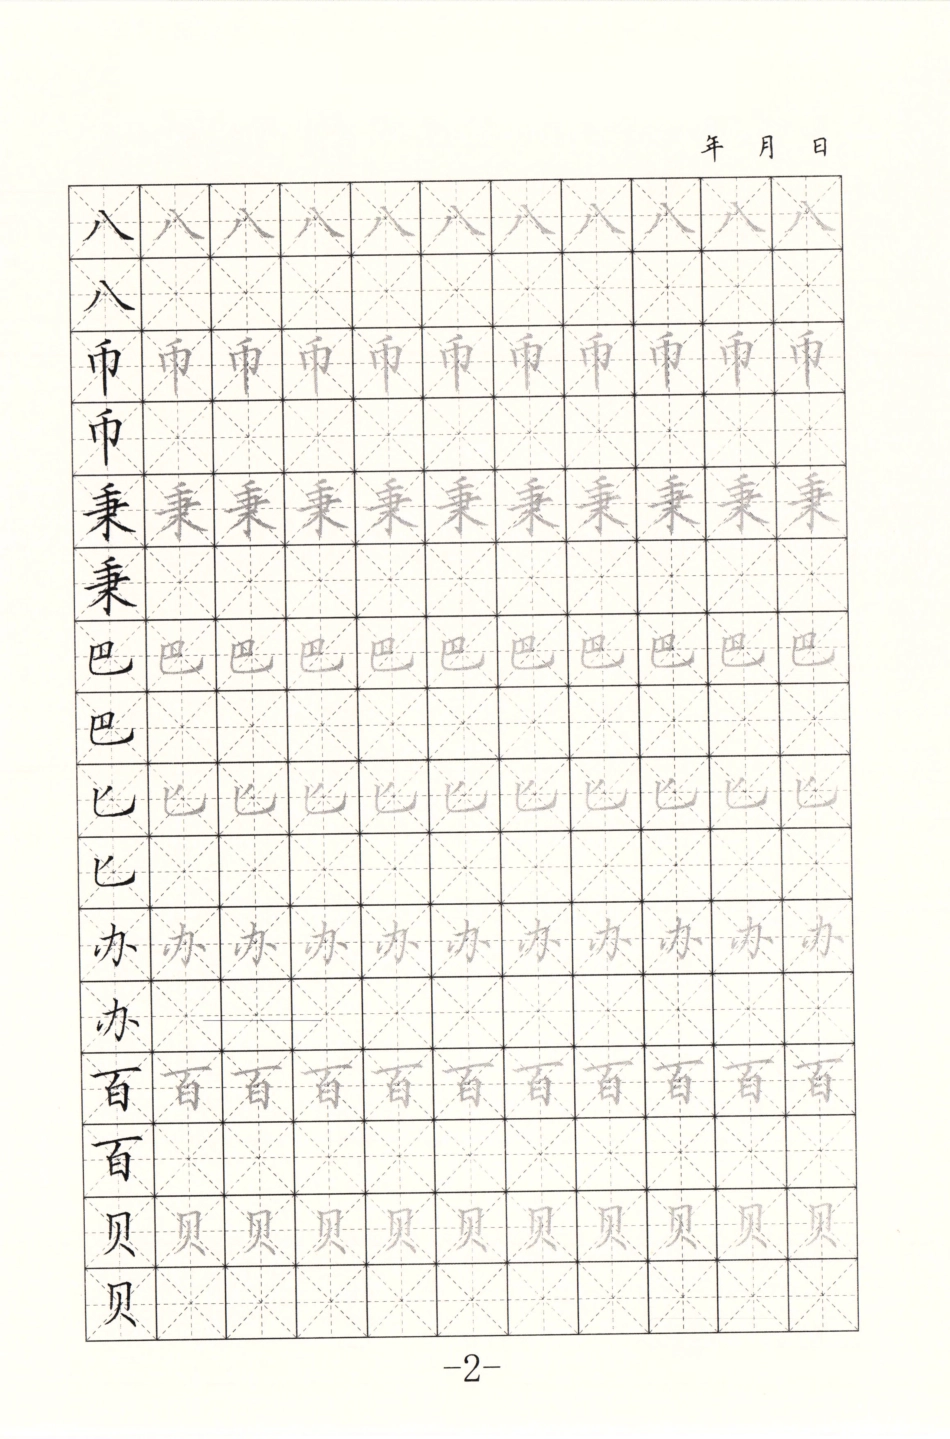 年 月 日
八 八 八 八 八 八 八 八 八 八 八
八
币 币 币 币 币 币 币 币 币 币 币
币
秉 秉 秉 秉 秉 秉 秉 秉 秉 秉 秉
秉
巴 巴 巴 巴 巴 巴 巴 巴 巴 巴 巴
巴
匕 匕 匕 匕 匕 匕 匕 匕 匕 匕 匕
匕
办 办 办 办 办 办 办 办 办 办 办
办
百 百 百 百 百 百 百 百 百 百 百
百
贝 贝 贝 贝 贝 贝 贝 贝 贝 贝 贝
贝
-2-